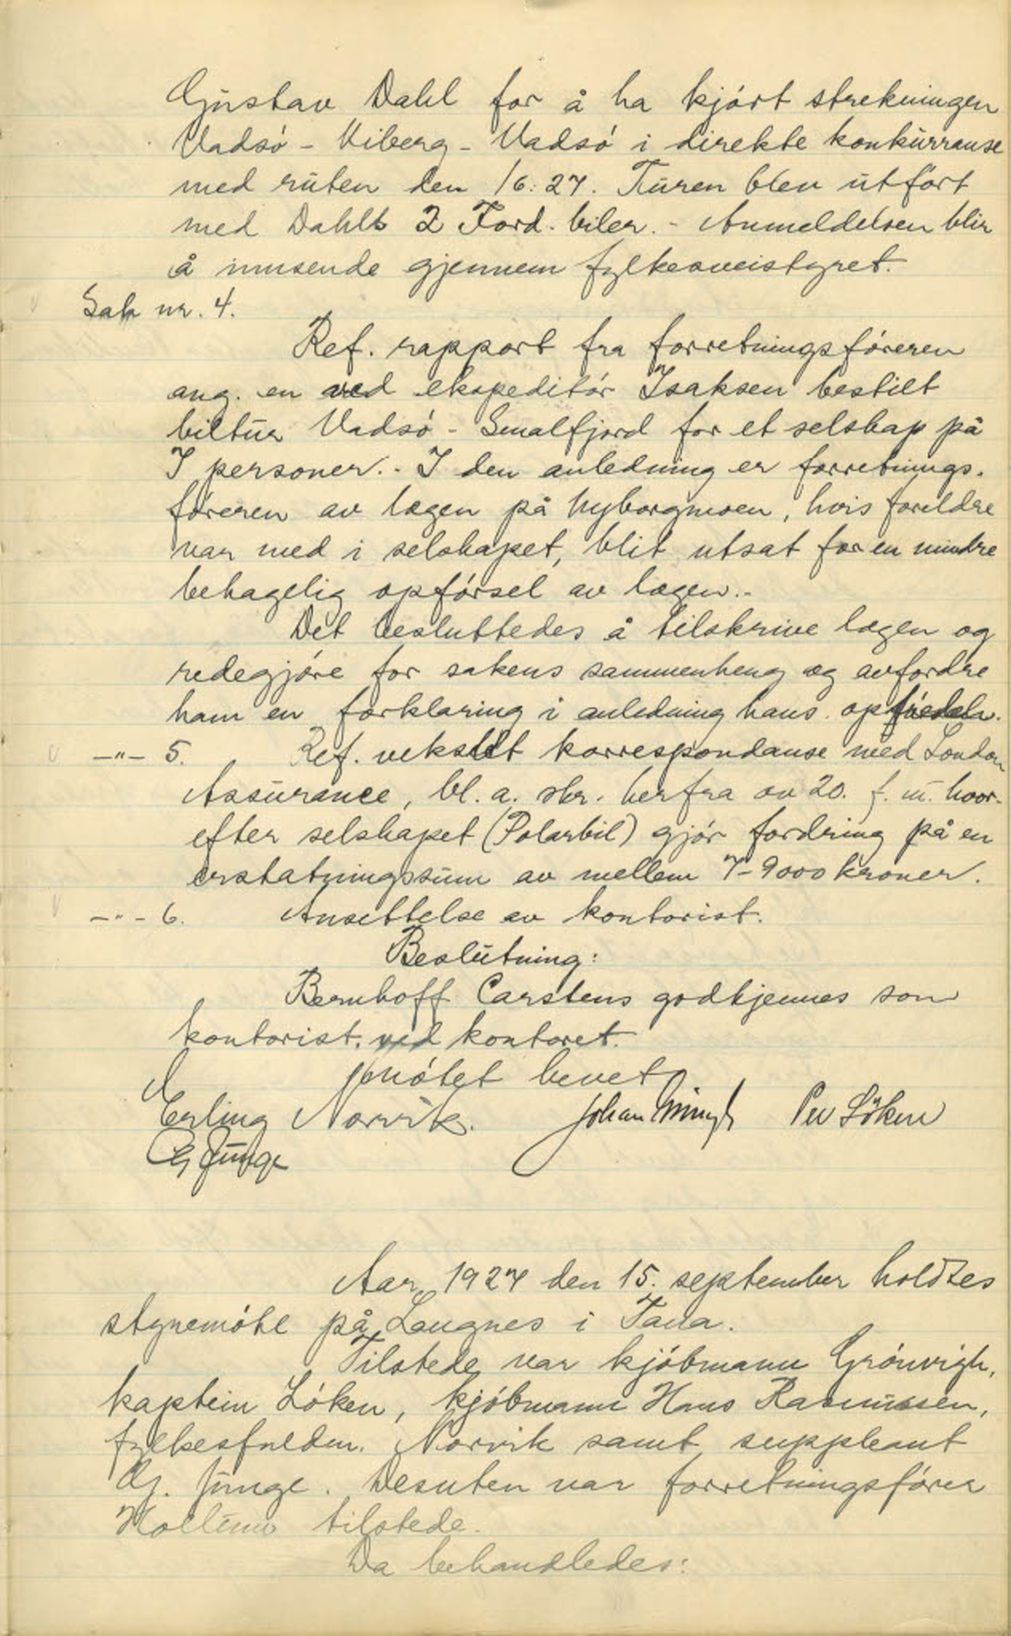 Gustav Dahl for å ha kjört strekningen
Vadsö - Kiberg - Vadsö i direkte konkurranse
med ruten den 16. 27. Turen blev utfört
med Dahls 2 Ford. biler. - Anmeldelsen blir
å innsende gjennem fylkesveistyret.
Sak nr. 4.
Ref. rapport fra forretningsföreren
ang. en ved ekspeditör Isaksen bestilt
biltur Vadsö - Smalfjord for et selskap på
7 personer. - I den anledning er forretnings-
föreren av lægen på Nyborgmoen, hvis foreldre
var med i selskapet, blit utsat for en mindre
behagelig opförsel av lægen. -
Det besluttedes å tilskrive lægen og
redegjöre for sakens sammenheng og avfordre
ham en forklaring i anledning hans
—"— 5. Ref. vekslet korrespondanse med London
Assurance, bl. a. skr. herfra av 20. f. m. hvor-
efter selskapet (Polarbil) gjör fordring på en
erstatningssum av mellem 7-9000 kroner.
—"— 6. Ansettelse av kontorist.
Beslutning:
Bernhoff Carstens godkjennes som
kontorist. ved kontoret.
Mötet hevet
Erling Norvik. Johan Per Löken
G Junge
Aar 1927 den 15. september holdtes
styremöte på Langnes i Tana.
Tilstede var kjöbmann Grönvigh,
kaptein Löken, kjöbmann Hans Rasmussen,
fylkesfuldm. Norvik samt suppleant
G. Junge. Desuten var forretningsförer
tilstede.
Da behandledes: